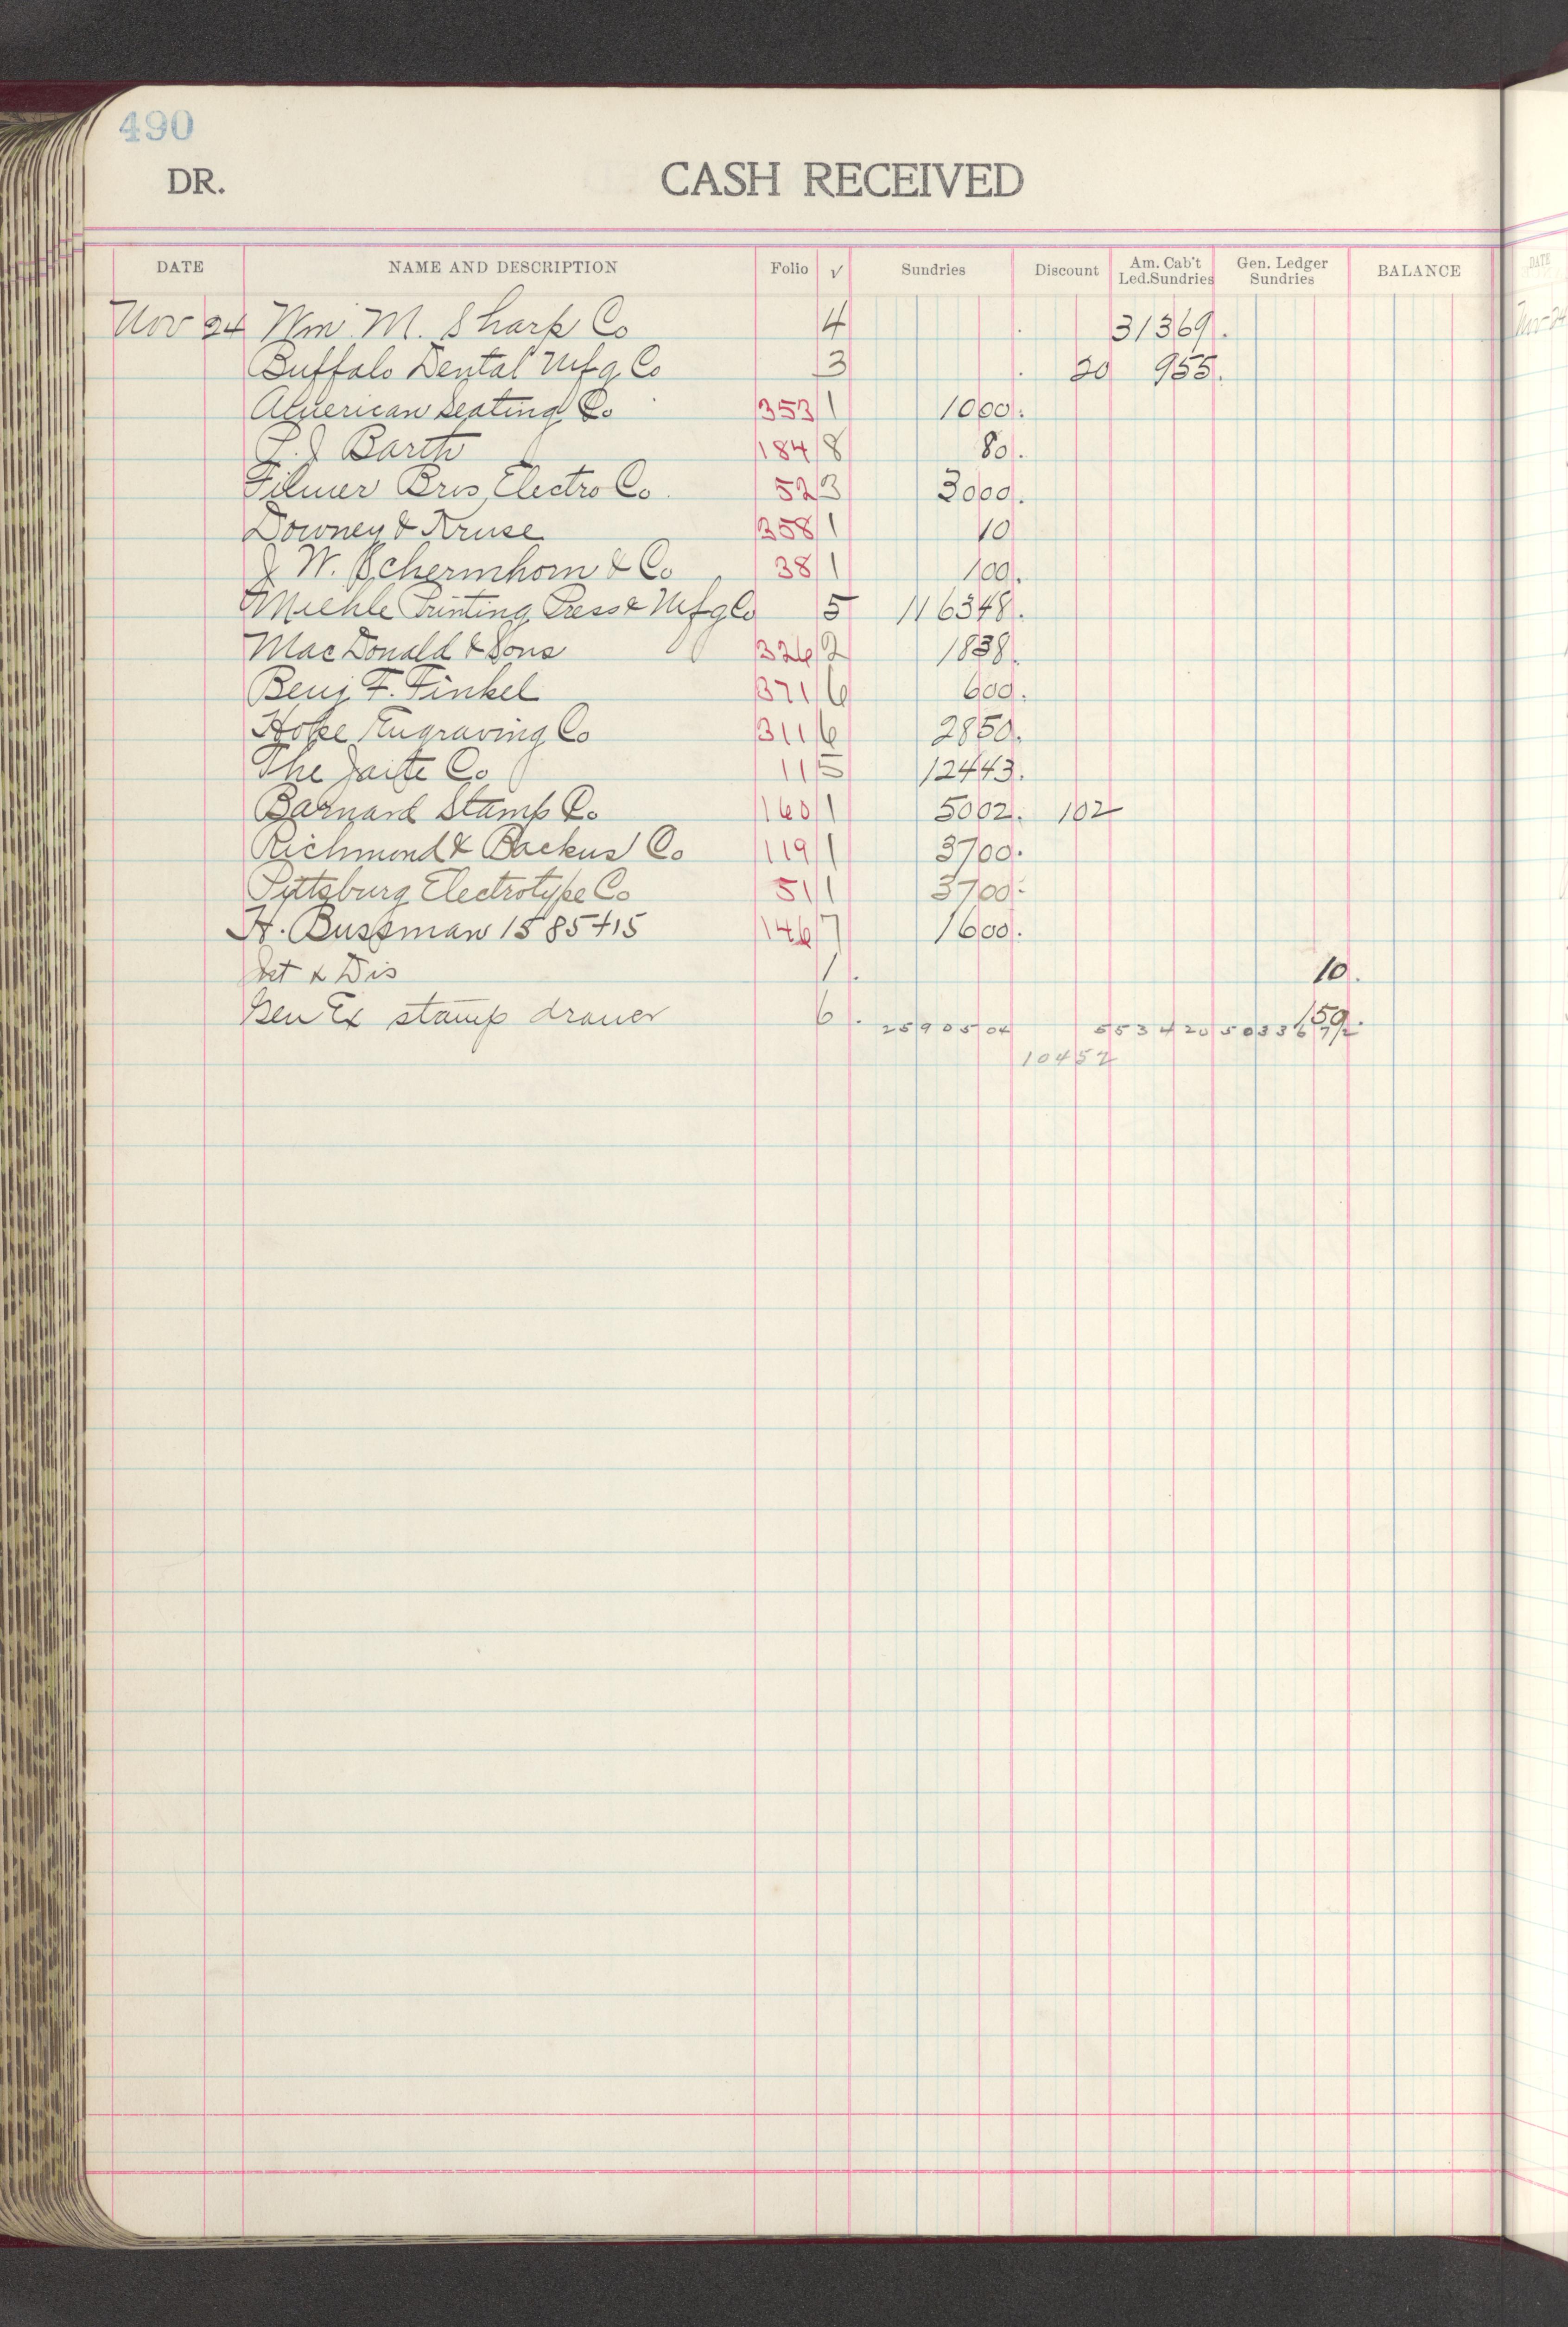 490
DR. CASH RECEIVED
DATE NAME AND DESCRIPTION Folio √ Sundries Discount Am. Cab't Led.Sundries Gen. Ledger Sundries BALANCE DATE
Nov 24 Wm. M. Sharp Co 4 31369. Nov 24
Buffalo Dental Mfg Co 3 20 955.
American Seating Co 353 1 1000.
P. J Barth 184 8 80.
Filmer Bros Electro Co. 52 3 3000.
Downey & Kruse 358 1 10
J W. Schermhorn & Co 38 1 100.
Miehle Printing Press & Mfg Co 5 116348.
MacDonald & Sons 326 2 1838.
Benj F. Finkel 371 6 600.
Hope Engraving Co 311 6 2850.
The Jaite Co 11 5 12443.
Barnard Stamp Co 160 1 5002. 102
Richmond & Backus Co 119 1 3700.
Pittsburg Electrotype Co 51 1 3700.
H. Bussman 1585+15 146 7 1600.
Int & Dis 1. 10.
Gen Ex stamp drawer 6. 150.
2590504 553420 5033672
10452